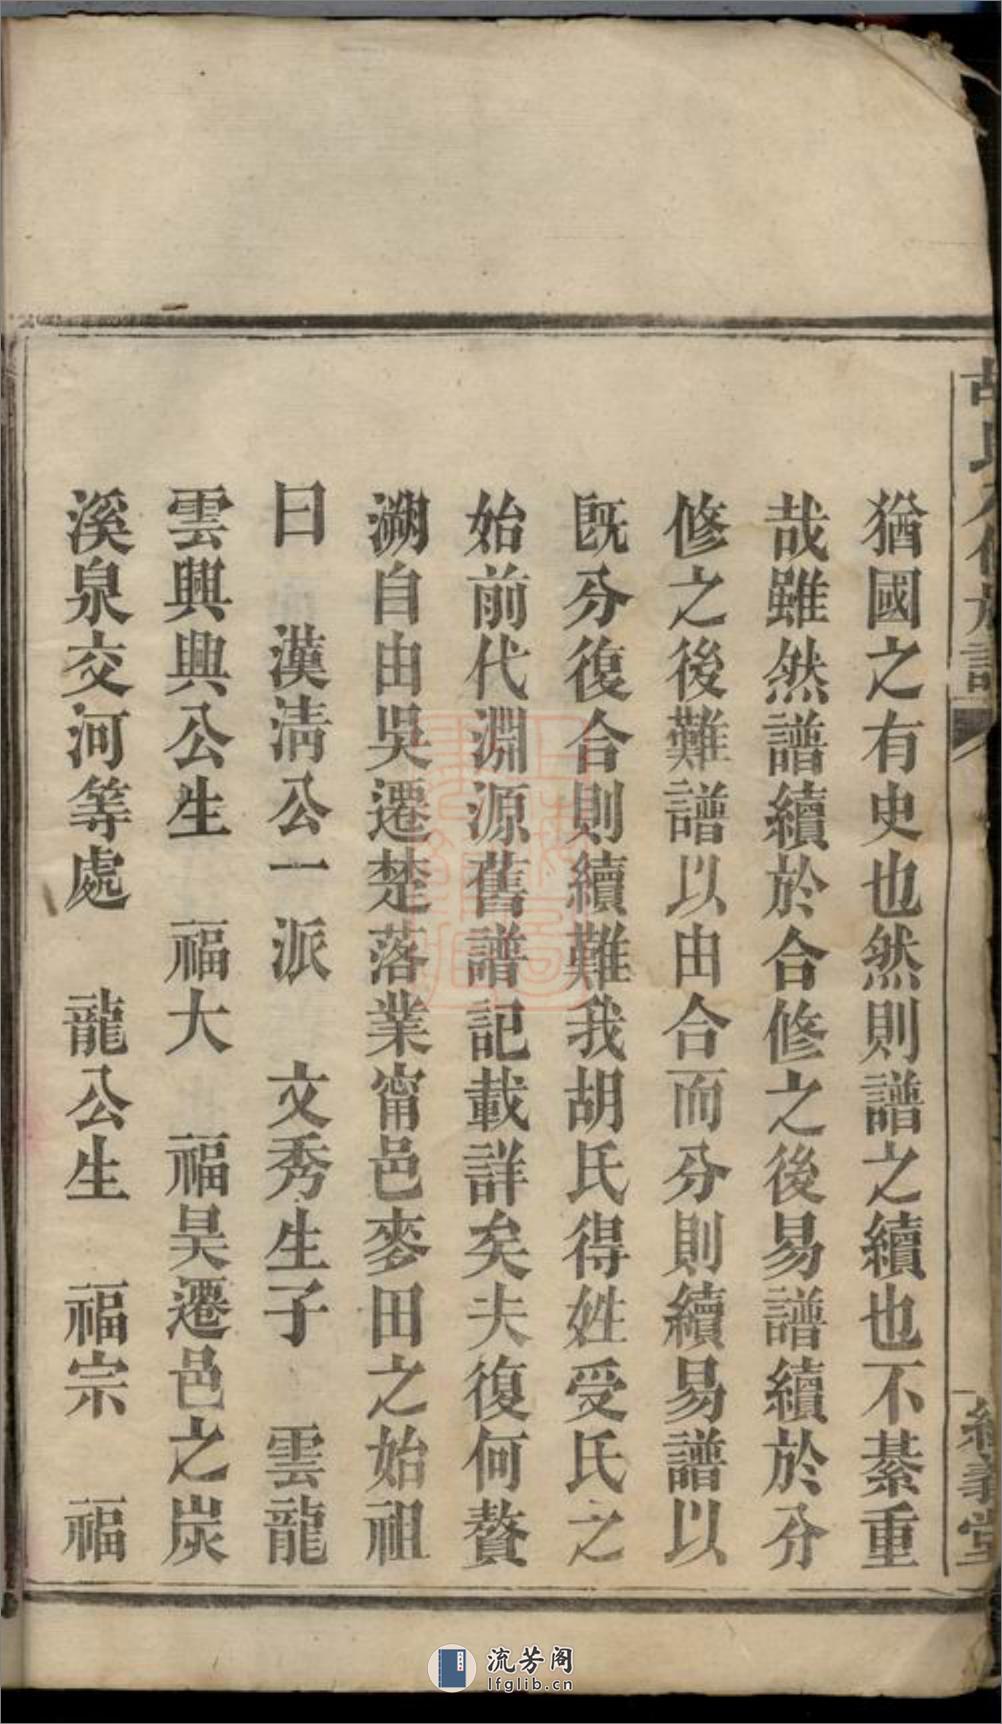 胡氏族譜
猶國之有史也然則譜之續也不綦重
哉雖然譜續於合修之後易譜續於分
修之後難譜以由合而分則續易譜以
既分復合則續難我胡氏得姓受氏之
始前代淵源舊譜記載詳矣夫復何贅
溯自由吳遷楚落業甯邑麥田之始祖
曰 漢清公一派 文秀生子 雲龍
雲興興公生 福大 福昊遷邑之炭
溪泉交河等處 龍公生 福宗 福
義堂
流芳阁
lfglib.cn